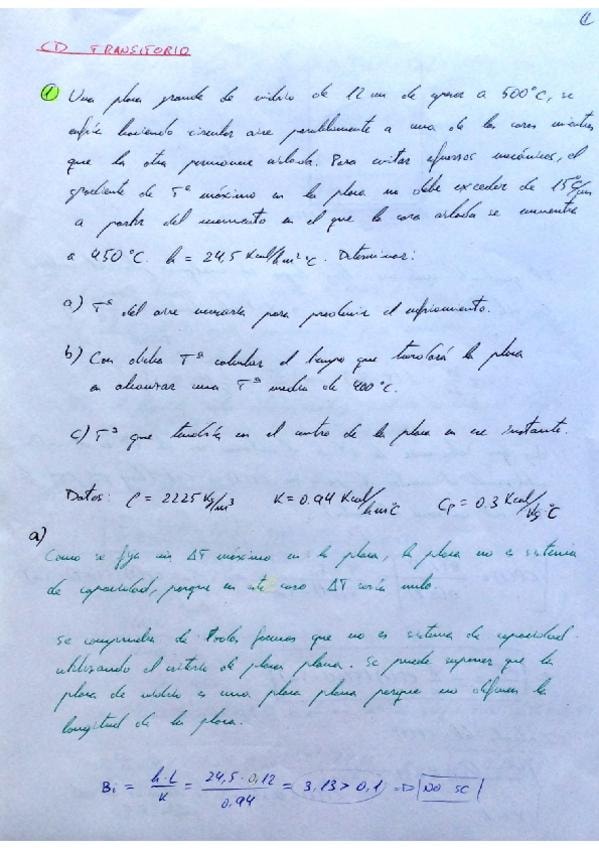 1
CD TRANSITORIO
1 Una placa grande de vidrio de 12 cm de grosor a 500°C, se
enfría haciendo circular aire paralelamente a una de las caras mientras
que la otra permanece aislada. Para evitar esfuerzos mecánicos, el
gradiente de Tª máximo en la placa no debe exceder de 15°C/cm
a partir del momento en el que la cara aislada se encuentra
a 450°C. h = 24,5 Kcal/hm²°C. Determinar:
a) Tª del aire necesaria para producir el enfriamiento.
b) Con dicha Tª calcular el tiempo que tardará la placa
en alcanzar una Tª media de 400°C.
c) Tª que tendrá en el centro de la placa en ese instante.
Datos: ρ = 2225 Kg/m³ K = 0.94 Kcal/hm°C Cp = 0.3 Kcal/Kg°C
a)
Como se fija un ΔT máximo en la placa, la placa no es sistema
de capacidad, porque en este caso ΔT sería nulo.
Se comprueba de todas formas que no es sistema de capacidad
utilizando el criterio de placa plana. Se puede suponer que la
placa de vidrio es una placa plana porque no definen la
longitud de la placa.
Bi = h·L/K = 24,5·0,12/0,94 = 3,13 > 0,1 => NO SC